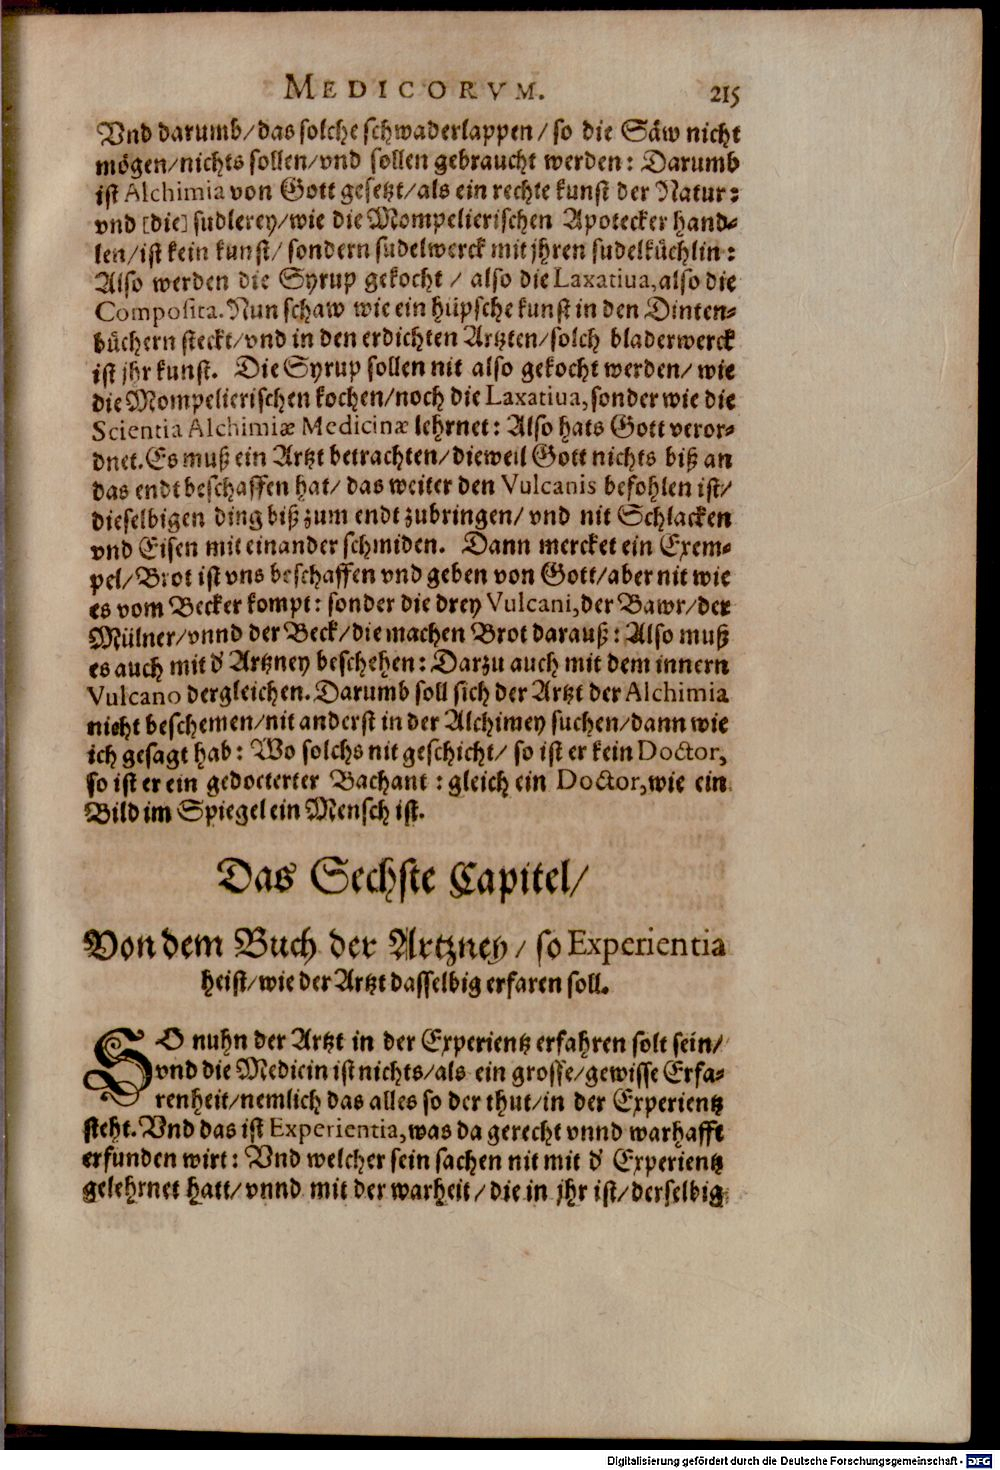 MEDICORVM. 215
Vnd darumb/das solche schwaderlappen/so die Säw nicht
mögen/nichts sollen/vnd sollen gebraucht werden: Darumb
ist Alchimia von Gott gesetzt/als ein rechte kunst der Natur:
vnd [die] sudlerey/wie die Mompelierischen Apotecker hand-
len/ist kein kunst/sondern sudelwerck mit jhren sudelküchlin:
Also werden die Syrup gekocht/also die Laxatiua,also die
Composita.Nun schaw wie ein hüpsche kunst in den Dinten-
büchern steckt/vnd in den erdichten Artzten/solch bladerwerck
ist jhr kunst. Die Syrup sollen nit also gekocht werden/wie
die Mompelierischen kochen/noch die Laxatiua,sonder wie die
Scientia Alchimiæ Medicinæ lehrnet: Also hats Gott veror-
dnet.Es muß ein Artzt betrachten/dieweil Gott nichts biß an
das endt beschaffen hat/das weiter den Vulcanis befohlen ist/
dieselbigen ding biß zum endt zubringen/vnd nit Schlacken
vnd Eisen mit einander schmiden. Dann mercket ein Exem-
pel/Brot ist vns beschaffen vnd geben von Gott/aber nit wie
es vom Becker kompt: sonder die drey Vulcani,der Bawr/der
Mülner/vnnd der Beck/die machen Brot darauß: Also muß
es auch mit d' Artzney beschehen: Darzu auch mit dem innern
Vulcano dergleichen.Darumb soll sich der Artzt der Alchimia
nicht beschemen/nit anderst in der Alchimey suchen/dann wie
ich gesagt hab: Wo solchs nit geschicht/so ist er kein Doctor,
so ist er ein gedocterter Bachant: gleich ein Doctor,wie ein
Bild im Spiegel ein Mensch ist.
Das Sechste Capitel/
Von dem Buch der Artzney/so Experientia
heist/wie der Artzt dasselbig erfaren soll.
SO nuhn der Artzt in der Experientz erfahren solt sein/
vnd die Medicin ist nichts/als ein grosse/gewisse Erfa-
renheit/nemlich das alles so der thut/in der Experientz
steht.Vnd das ist Experientia,was da gerecht vnnd warhafft
erfunden wirt: Vnd welcher sein sachen nit mit d' Experientz
gelehrnet hatt/vnnd mit der warheit/die in jhr ist/derselbig
Digitalisierung gefördert durch die Deutsche Forschungsgemeinschaft - DFG